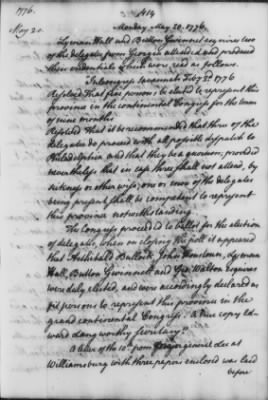 1776.
414
May 20.
Monday May 20. 1776.
Lyman Hall and Button Gwinnett esquires two
of the delegates from Georgia attended and produced
their credentials which were read as follows.
In Congress Savannah Feby 2d 1776
Resolved that five persons be elected to represent this
province in the continental Congress for the term
of nine months
Resolved That it be recommended that three of the
delegates do proceed with all possible dispatch to
Philadelphia and that they be a quorum; provided
nevertheless that in case three shall not attend, by
sickness or otherwise, one or more of the delegates
being present, shall be competent to represent
this province notwithstanding.
The Congress proceeded to ballot for the election
of delegates, when on closing the poll it appeared
that Archibald Bullock, John Houstoun, Lyman
Hall, Button Gwinnett and Geo Walton esquires
were duly elected, and were accordingly declared as
fit persons to represent this province in the
grand continental Congress. A true copy Ed-
ward Langworthy secretary.
A letter of the 10th from general Lee at
Williamsburg with three papers enclosed was laid
before